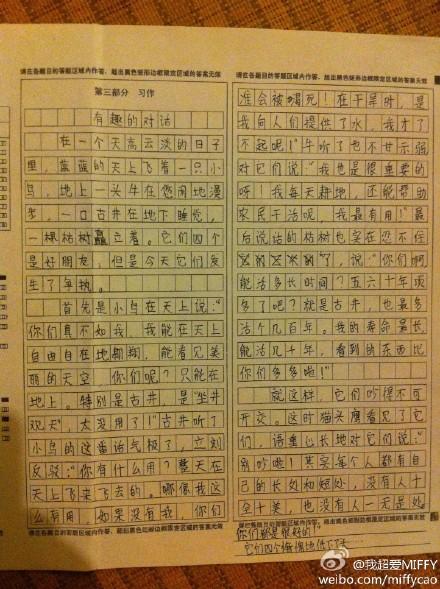 请在各题目的答题区域内作答，超出黑色矩形边框限定区域的答案无效
第三部分 习作
有趣的对话
在一个天高云淡的日子
里，蓝蓝的天上飞着一只小
鸟，地上一头牛在悠闲地漫
步，一口古井在地下睡觉，
一棵枯树矗立着。它们四个
是好朋友，但是今天它们发
生了争执。
首先是小鸟在天上说：“
你们真不如我，我能在天上
自由自在地翱翔，能看见美
丽的天空，你们呢？只能在
地上。特别是古井，是“坐井
观天”，太没用了！”古井听了
小鸟的这番话气极了，立刻
反驳：“你有什么用？整天在
天上飞来飞去的。哪像我这
么有用，如果没有我，你们
请在各题目的答题区域内作答，超出黑色矩形边框限定区域的答案无效
请在各题目的答题区域内作答，超出黑色矩形边框限定区域的答案无效
准会被渴死！在干旱时，是
我向人们提供了水，我才了
不起呢！”牛听了也不甘示弱
对它们说：“我也是很重要的
呀！我每天耕地，还能帮助
农民干活呢，我最有用！”最
后说话的枯树也实在忍不住
了，说：“你们啊
能活多长时间？五六十年顶
多了吧？就是古井，也最多
活个几百年。我的寿命最长，
能活几千年，看到的东西比
你们多多啦！”
就这样，它们吵得不可
开交。这时猫头鹰看见了它
们，语重心长地对它们说：“
别吵啦！其实每个人都有自
己的长处和短处，没有人十
全十美，也没有人一无是处。
请在各题目的答题区域内作答，超出黑色矩形边框限定区域的答案无效
你们都是很好的！”
它们四个惭愧地低下了头
@我超爱MIFFY
weibo.com/miffycao